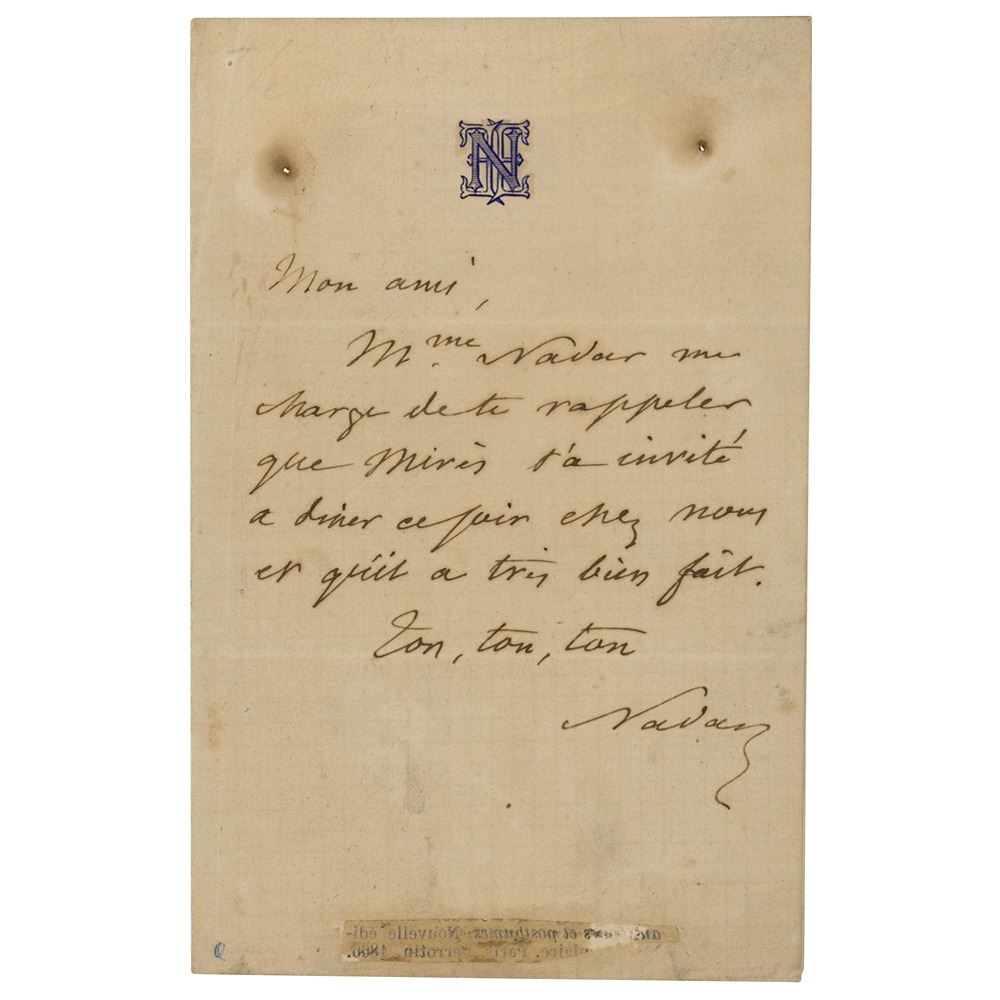 N
Mon ami,
Mme Nadar me
charge de te rappeler
que Mirès s'a invité
a diner ce soir chez nous
et qu'il a très bien fait.
Ton, ton, ton
Nadar
et posthumes. Nouvelle édi-
Paris, Perrotin 1866.